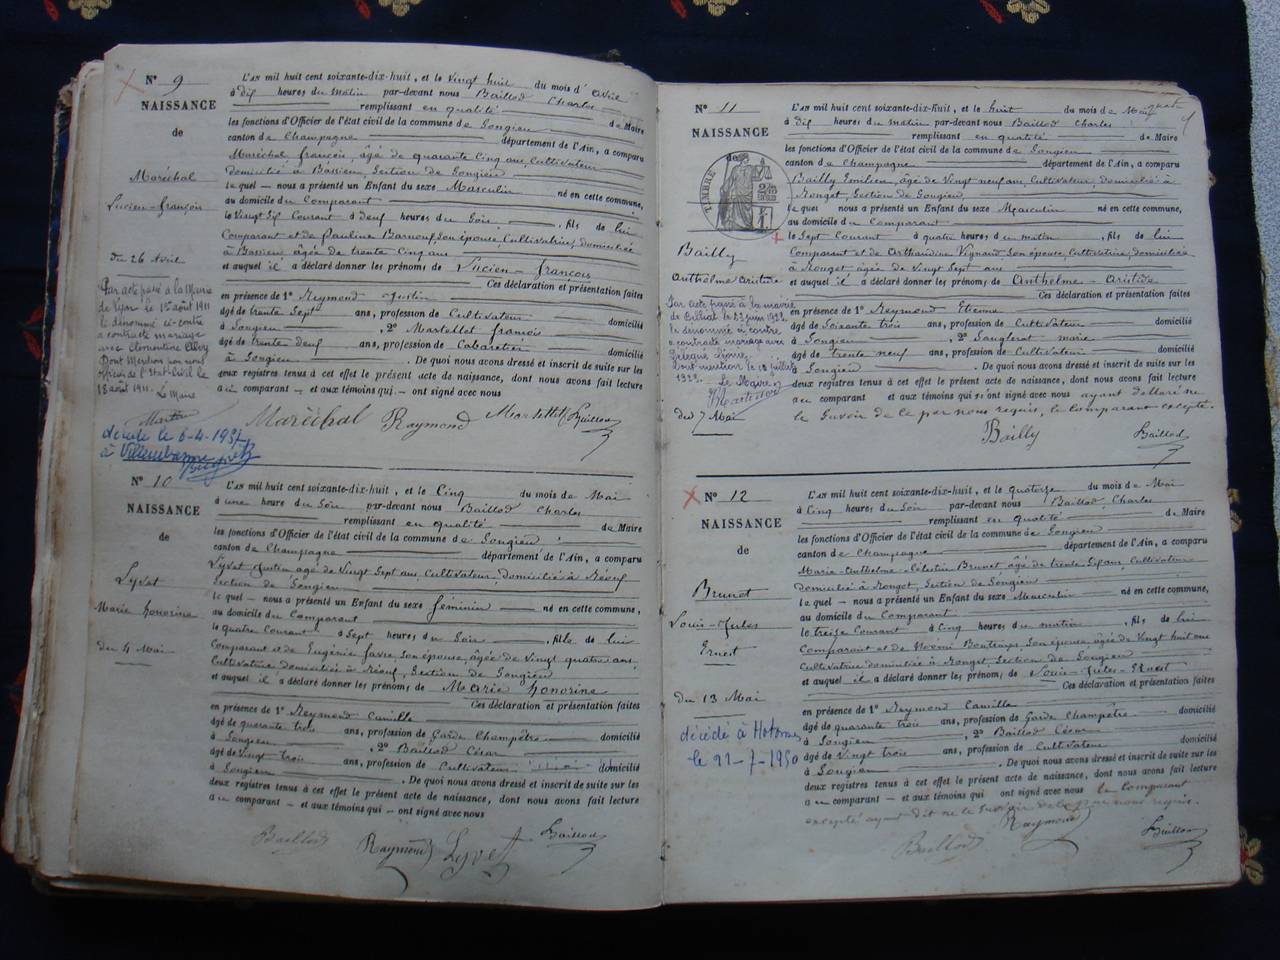 N° 9
NAISSANCE
de
Maréchal
Lucien-françois
du 26 Avril
Par acte passé à la Mairie
de Lyon le 1er août 1911
le dénommé ci-contre
a contracté mariage
avec Clémentine
Dont Mention par nous
officier de l'Etat-Civil le
18 août 1911. Le Maire
décédé le 6-4-1937
à Villeurbanne
L'AN mil huit cent soixante-dix-huit, et le Vingt huit du mois d'Avril
à dix heures du matin par-devant nous Baillod Charles
remplissant en qualité de Maire
les fonctions d'Officier de l'état civil de la commune de Songieu
canton de Champagne département de l'Ain, a comparu
Maréchal, françois, âgé de quarante Cinq ans, Cultivateur
domicilié à Bassieu, Section de Songieu
le quel — nous a présenté un Enfant du sexe Masculin né en cette commune,
au domicile du Comparant
le Vingt Six Courant à deux heures du Soir, fils de lui
Comparant et de Pauline Son épouse, Cultivatrice, domiciliée
à Bassieu, âgée de trente Cinq ans
et auquel il a déclaré donner les prénoms de Lucien-françois
Ces déclaration et présentation faites
en présence de 1° Reymond Justin
âgé de trente Sept ans, profession de Cultivateur domicilié
à Songieu, 2° Martellet françois
âgé de trente deux ans, profession de Cabaretier domicilié
à Songieu. De quoi nous avons dressé et inscrit de suite sur les
deux registres tenus à cet effet le présent acte de naissance, dont nous avons fait lecture
au comparant — et aux témoins qui — ont signé avec nous
Maréchal Raymond Martellet Baillod
N° 10
NAISSANCE
de
Lyvet
Marie honorine
du 4 Mai
L'AN mil huit cent soixante-dix-huit, et le Cinq du mois de Mai
à une heure du Soir par-devant nous Baillod Charles
remplissant en qualité de Maire
les fonctions d'Officier de l'état civil de la commune de Songieu
canton de Champagne département de l'Ain, a comparu
Lyvet Justin âgé de Vingt Sept ans, Cultivateur, domicilié à
Section de Songieu
le quel — nous a présenté un Enfant du sexe féminin né en cette commune,
au domicile du Comparant
le quatre Courant à Sept heures du Soir, fille de lui
Comparant et de Eugénie favre, Son épouse, âgée de Vingt quatre ans,
Cultivatrice domiciliée à Section de Songieu
et auquel il a déclaré donner les prénoms de Marie honorine
Ces déclaration et présentation faites
en présence de 1° Reymond Camille
âgé de quarante trois ans, profession de Garde Champêtre domicilié
à Songieu, 2° Baillod César
âgé de Vingt trois ans, profession de Cultivateur domicilié
à Songieu. De quoi nous avons dressé et inscrit de suite sur les
deux registres tenus à cet effet le présent acte de naissance, dont nous avons fait lecture
au comparant — et aux témoins qui — ont signé avec nous
Baillod Raymond Lyvet Baillod
N° 11
NAISSANCE
de
TIMBRE
Bailly
Anthelme Aristide
Par acte passé à la mairie
de Billiat le 23 juin 1922
le dénommé ci contre
a contracté mariage avec
Dont mention le 18 juillet
1922. Le Maire
du 7 Mai
L'AN mil huit cent soixante-dix-huit, et le huit du mois de Mai
à dix heures du matin par-devant nous Baillod Charles
remplissant en qualité de Maire
les fonctions d'Officier de l'état civil de la commune de Songieu
canton de Champagne département de l'Ain, a comparu
Bailly Emilien, âgé de Vingt neuf ans, Cultivateur, domicilié à
Section de Songieu
le quel nous a présenté un Enfant du sexe Masculin né en cette commune,
au domicile du Comparant
le Sept Courant à quatre heures du matin, fils de lui
Comparant et de Vignand Son épouse, Cultivatrice, domiciliée
à âgée de Vingt Sept ans
et auquel il a déclaré donner les prénoms de Anthelme-Aristide
Ces déclaration et présentation faites
en présence de 1° Reymond Etienne
âgé de Soixante trois ans, profession de Cultivateur domicilié
à Songieu, 2° marie
âgé de trente neuf ans, profession de Cultivateur domicilié
à Songieu. De quoi nous avons dressé et inscrit de suite sur les
deux registres tenus à cet effet le présent acte de naissance, dont nous avons fait lecture
au comparant et aux témoins qui n'ont signé avec nous ayant déclaré ne
le Savoir de ce par nous requis, le comparant excepté.
Bailly Baillod
N° 12
NAISSANCE
de
Brunet
Louis-Jules
Ernest
du 13 Mai
décédé à Hotonnes
le 21-7-1950
L'AN mil huit cent soixante-dix-huit, et le quatorze du mois de Mai
à Cinq heures du Soir par-devant nous Baillod, Charles
remplissant en qualité de Maire
les fonctions d'Officier de l'état civil de la commune de Songieu
canton de Champagne département de l'Ain, a comparu
Marie-Anthelme-Célestin Brunet âgé de trente Six ans, Cultivateur
domicilié à Section de Songieu
le quel — nous a présenté un Enfant du sexe Masculin né en cette commune,
au domicile du Comparant
le treize Courant à Cinq heures du matin, fils de lui
Comparant et de Noémi Bontemps, Son épouse, âgée de Vingt huit ans
Cultivatrice domiciliée à Section de Songieu
et auquel il a déclaré donner les prénoms de Louis-Jules-Ernest
Ces déclaration et présentation faites
en présence de 1° Reymond Camille
âgé de quarante trois ans, profession de Garde Champêtre domicilié
à Songieu, 2° Baillod César
âgé de Vingt trois ans, profession de Cultivateur domicilié
à Songieu. De quoi nous avons dressé et inscrit de suite sur les
deux registres tenus à cet effet le présent acte de naissance, dont nous avons fait lecture
au comparant — et aux témoins qui ont signé avec nous le Comparant
excepté ayant dit ne le Savoir de ce par nous requis.
Baillod Raymond Baillod